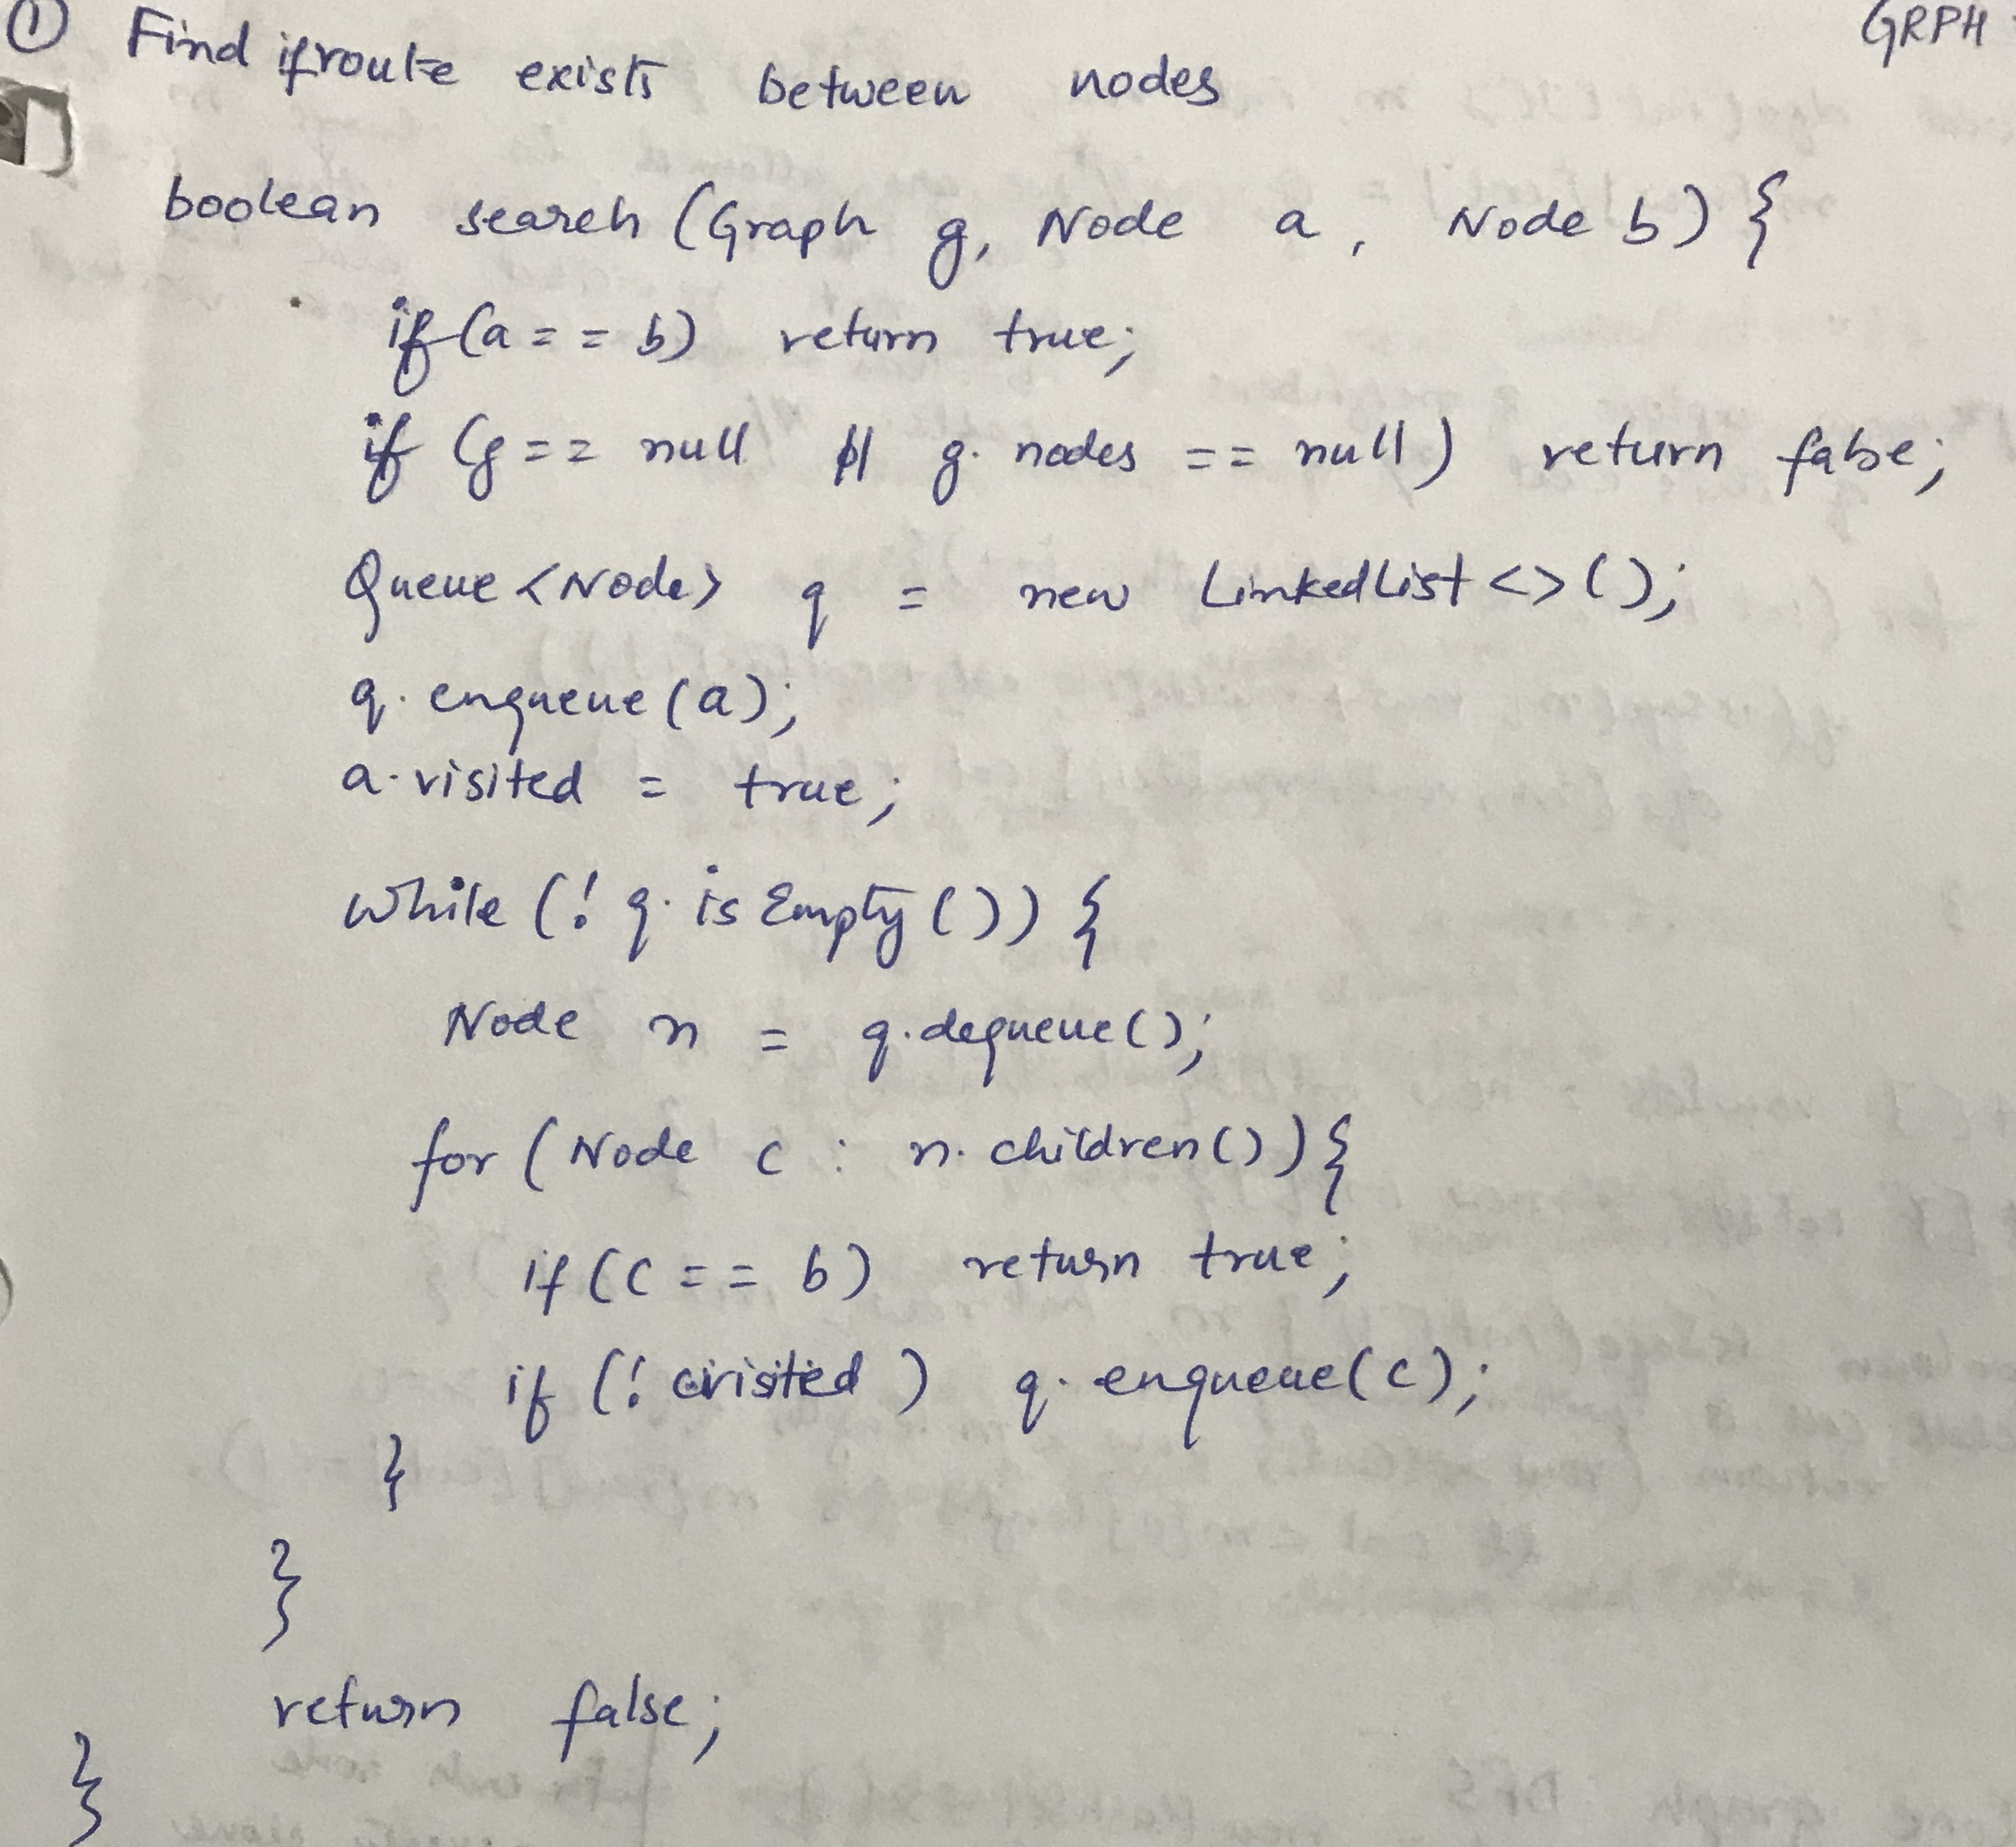 ① Find if route exists between nodes
GRPH
boolean search (Graph g, Node a, Node b) {
if (a == b) return true;
if (g == null || g.nodes == null) return false;
Queue <Node> q = new LinkedList <> ();
q.enqueue (a);
a.visited = true;
while (! q.isEmpty ()) {
Node n = q.dequeue ();
for (Node c : n.children ()) {
if (c == b) return true;
if (! c.visited ) q.enqueue (c);
}
}
return false;
}